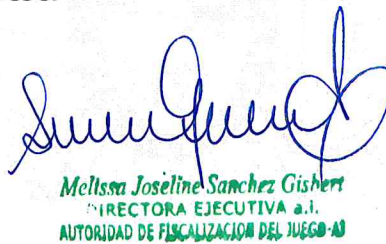 Melissa Joseline Sanchez Gisbert
DIRECTORA EJECUTIVA a.i.
AUTORIDAD DE FISCALIZACIÓN DEL JUEGO-AJ